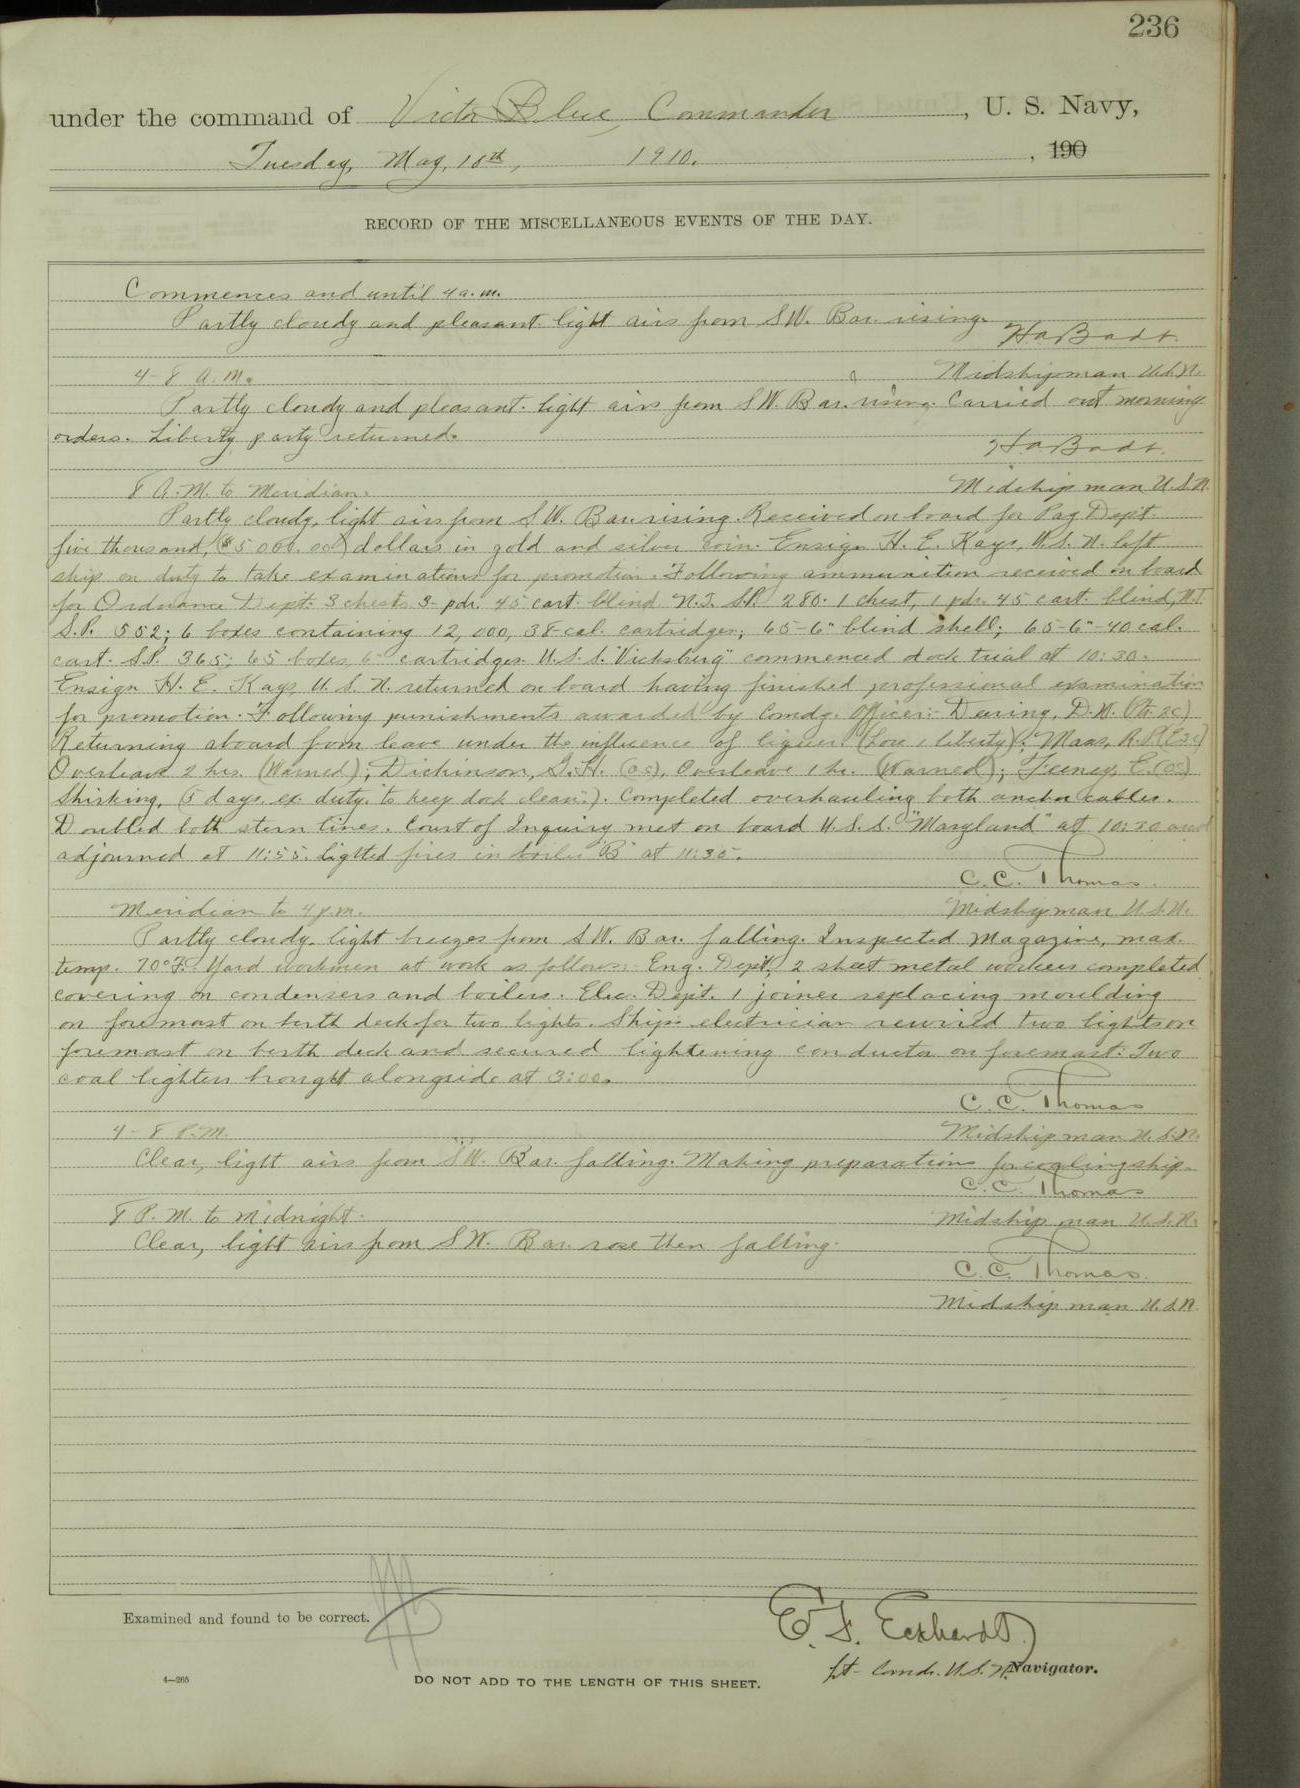 236
under the command of Victor Blue, Commander, U. S. Navy,
Tuesday, May, 10th, 1910. , 190
RECORD OF THE MISCELLANEOUS EVENTS OF THE DAY.
Commences and until 4 a.m.
Partly cloudy and pleasant. light airs from SW. Bar. rising.
H a Badt.
4-8 A.M.
Midshipman U.S.N.
Partly cloudy and pleasant. light airs from SW. Bar. rising. Carried out morning
orders. Liberty party returned.
H a Badt.
8 A.M. to Meridian.
Midshipman U.S.N.
Partly cloudy, light airs from SW. Bar. rising. Received on board for Pay Dept.
five thousand, ($5000.00) dollars in gold and silver coin. Ensign H. E. Kays, U.S.N. left
ship on duty to take examinations for promotion. Following ammunition received on board
for Ordnance Dept: 3 chests 3 pdr. 45 cart. blind N.T. S.P. 280. 1 chest, 1 pdr. 45 cart. blind, N.T.
S.P. 552; 6 boxes containing 12,000, 38-cal. cartridges; 65-6" blind shell; 65-6"-40 cal.
cart. S.P. 365; 65 boxes 6" cartridges. U.S.S. "Vicksburg" commenced dock trial at 10:30.
Ensign H. E. Kays U.S.N. returned on board having finished professional examination
for promotion. Following punishments awarded by Comdg. Officer:- Dearing, D.W. (Ptr. 2c)
Returning aboard from leave under the influence of liquor. (Lose 1 liberty); Maas, R.P. (E3c)
Overleave 2 hrs. (Warned); Dickinson, G.H. (OS), Overleave 1 hr. (Warned); Feeney, E. (OS)
Shirking, (5 days ex. duty "to keep dock clean"). Completed overhauling both anchor cables.
Doubled both stern lines. Court of Inquiry met on board U.S.S. "Maryland" at 10:30 and
adjourned at 11:55. lighted fires in boiler "B" at 11:35.
C. C. Thomas.
Meridian to 4 p.m.
Midshipman U.S.N.
Partly cloudy, light breezes from SW. Bar. falling. Inspected Magazine, max.
temp. 70°F. Yard workmen at work as follows: Eng. Dept. 2 sheet metal workers completed
covering on condensers and boilers. Elec. Dept. 1 joiner replacing moulding
on foremast on berth deck for two lights. Ship's electrician rewired two lights on
foremast on berth deck and secured lightening conductor on foremast. Two
coal lighters brought alongside at 3:00.
C. C. Thomas
4-8 P.M.
Midshipman U.S.N.
Clear, light airs from SW. Bar. falling. Making preparations for coaling ship.
C. C. Thomas
8 P. M. to Midnight.
Midshipman U.S.N.
Clear, light airs from SW. Bar. rose then falling.
C. C. Thomas.
Midshipman U.S.N.
Examined and found to be correct.
E. F. Eckhardt
Lt-Comdr. U.S.N. Navigator.
4—265
DO NOT ADD TO THE LENGTH OF THIS SHEET.